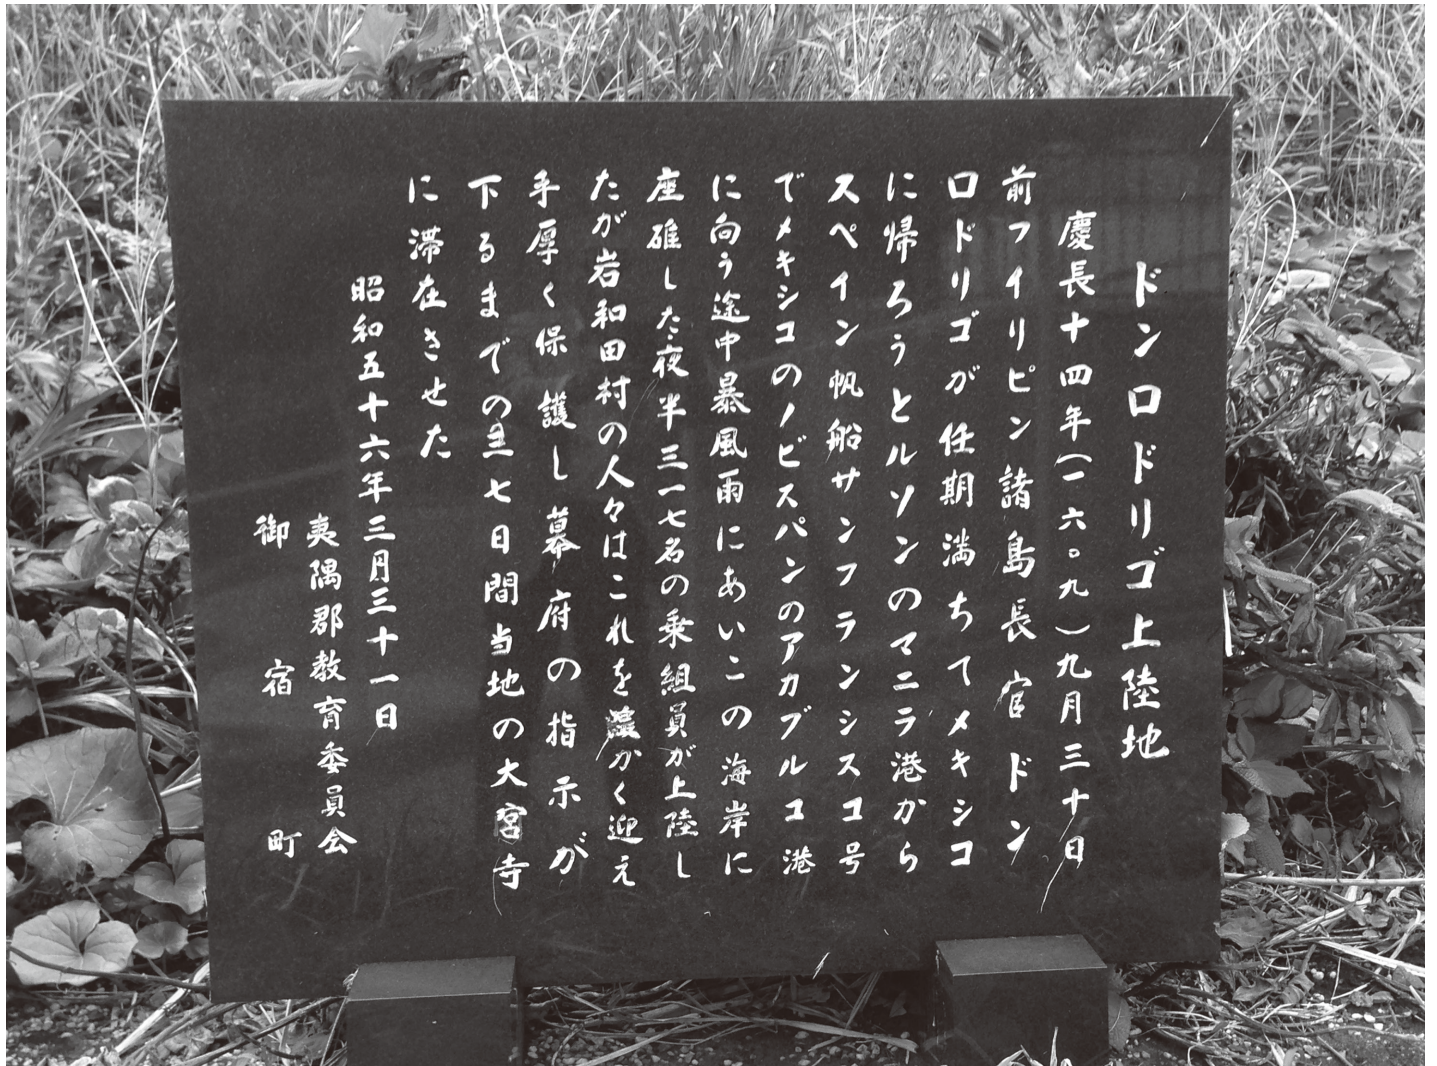 ドンロドリゴ上陸地
慶長十四年(一六〇九)九月三十日
前フイリピン諸島長官ドン
ロドリゴが任期満ちてメキシコ
に帰ろうとルソンのマニラ港から
スペイン帆船サンフランシスコ号
でメキシコのノビスパンのアカプルコ港
に向う途中暴風雨にあいこの海岸に
座礁した夜半三一七名の乗組員が上陸し
たが岩和田村の人々はこれを暖かく迎え
手厚く保護し幕府の指示が
下るまでの三七日間当地の大宮寺
に滞在させた
昭和五十六年三月三十一日
夷隅郡教育委員会
御宿町